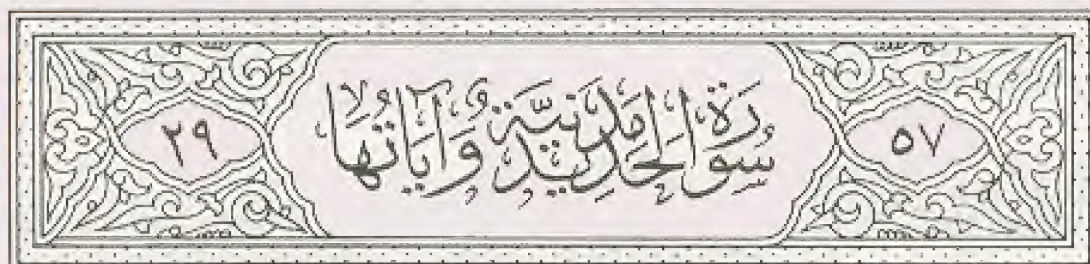 ٥٧
سُورَةُ الْحَدِيدِ مَدَنِيَّةٌ وَآيَاتُهَا
٢٩